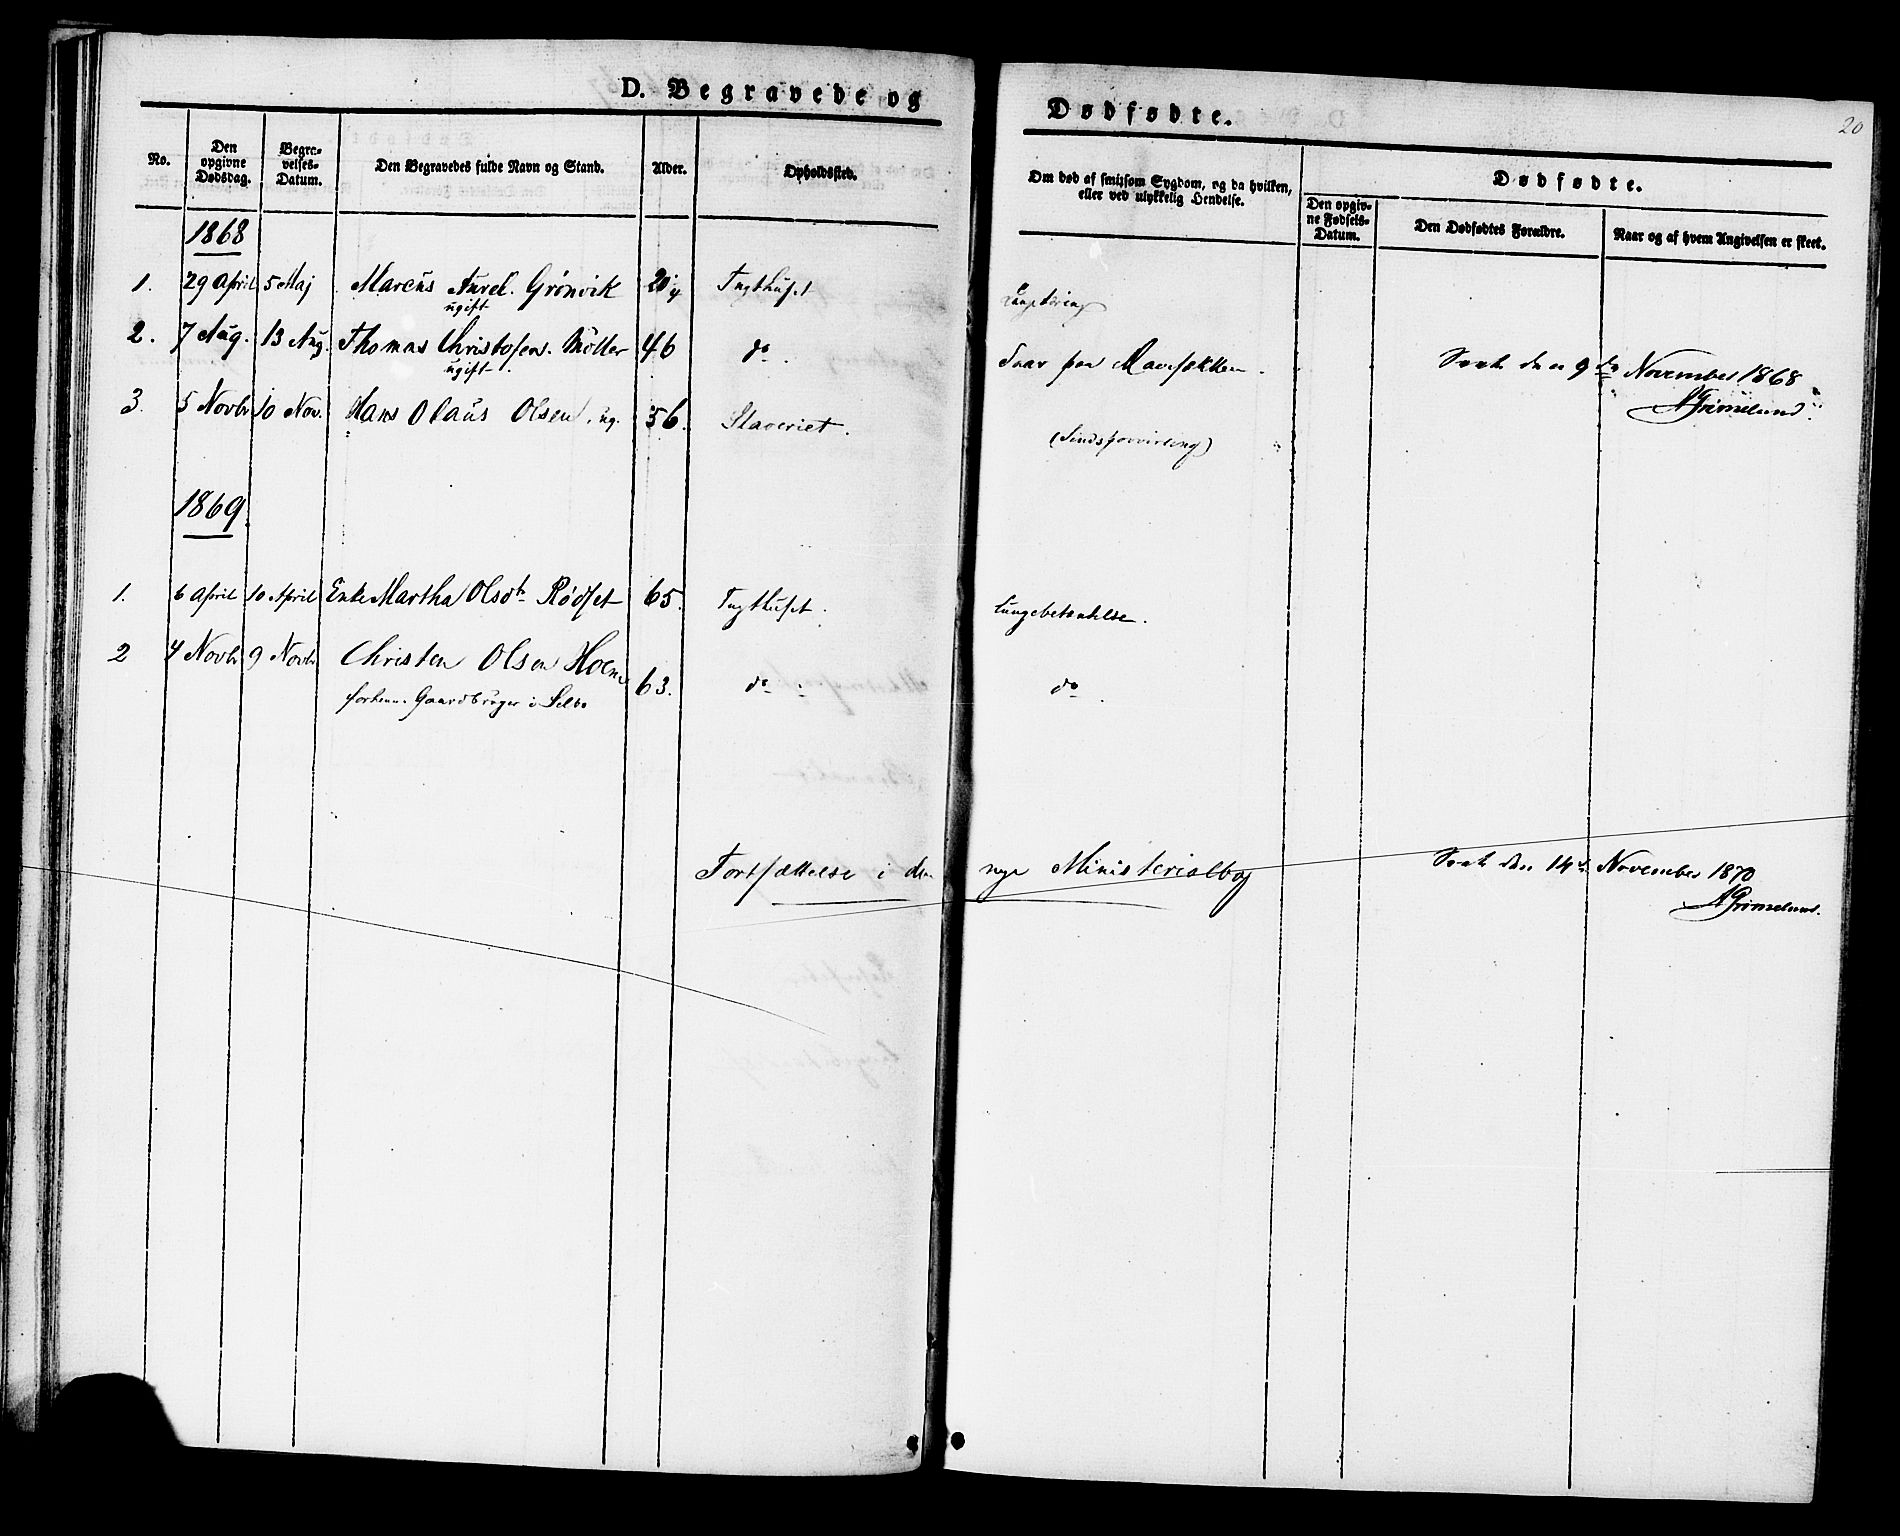 D. Begravede og
Dødfødte.
20
No.
Den opgivne Dødsdag.
Begravelses-Datum.
Den Begravedes fulde Navn og Stand.
Alder.
Opholdssted.
Om død af smitsom Sygdom, og da hvilken,
eller ved ulykkelig Hendelse.
Dødfødte.
Den opgivne Fødsels-Datum.
Den Dødfødtes Forældre.
Naar og af hvem Angivelsen er skeet.
1868
1. 29 April 5 Maj Marcus Aurel. Grönvik 20 Tugthuset
ugift
2. 7 Aug. 13 Aug. Thomas Christofers. Möller 46 do. Saar paa Mavesækken.
ugift.
Seet den 9de November 1868
AGrimelund.
3. 5 Novbr 10 Nov. Hans Olaus Olsen, ug. 56. Slaveriet. (Sindsforvirring)
1869.
1. 6 April 10 April Enke Martha Olsdtr Rödset 65. Tugthuset. Lungebetændelse.
2 4 Novbr 9 Novbr Christen Olsen Moen 63. do. do.
forhenv. Gaardbruger i Selbo
Fortsættelse i den nye Ministerialbog
Seet den 14de November 1870
AGrimelund.